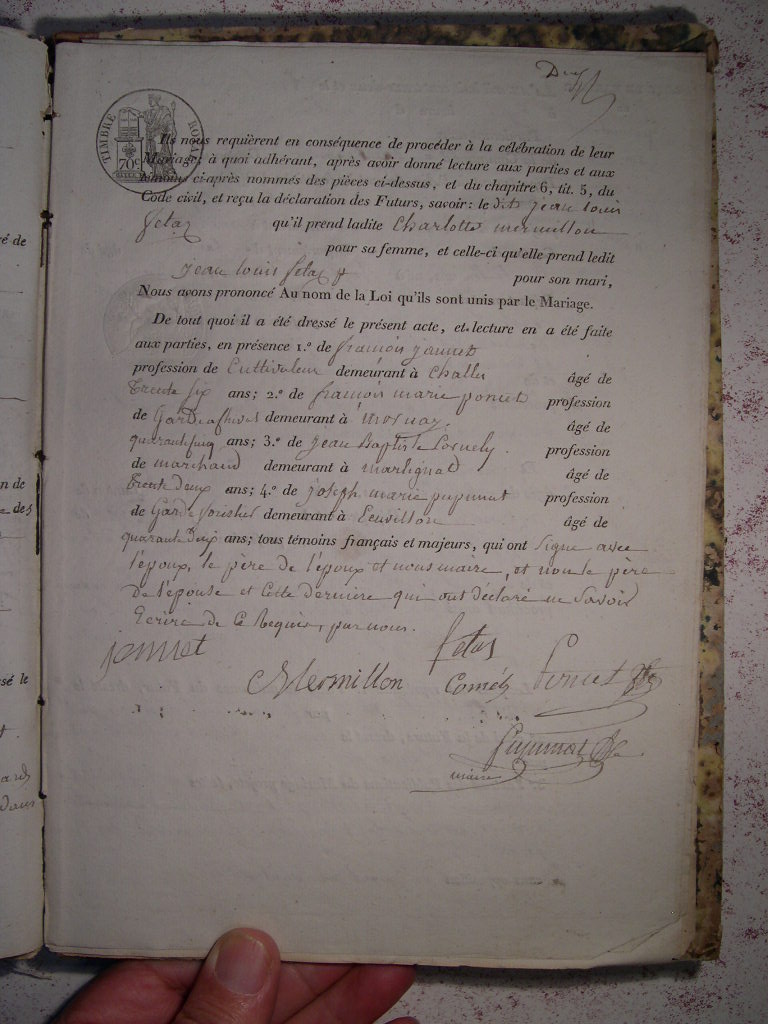 Deux
TIMBRE ROYAL
70c
Ils nous requièrent en conséquence de procéder à la célébration de leur
Mariage; à quoi adhérant, après avoir donné lecture aux parties et aux
témoins ci-après nommés des pièces ci-dessus, et du chapitre 6, tit. 5, du
Code civil, et reçu la déclaration des Futurs, savoir: le dit jean louis
fetaz qu'il prend ladite Charlotte mermillon
pour sa femme, et celle-ci qu'elle prend ledit
jean louis fetaz pour son mari,
Nous avons prononcé Au nom de la Loi qu'ils sont unis par le Mariage.
De tout quoi il a été dressé le présent acte, et lecture en a été faite
aux parties, en présence 1.º de françois
profession de Cultivateur demeurant à Challes âgé de
trente six ans; 2.º de françois marie poncet profession
de demeurant à mornay. âgé de
quarante cinq ans; 3.º de Jean Baptiste profession
de marchand demeurant à martignat âgé de
trente deux ans; 4.º de joseph marie pupunat profession
de Garde forestier demeurant à âgé de
quarante deux ans; tous témoins français et majeurs, qui ont signé avec
l'époux, le père de l'époux et nous maire, et non le père
de l'épouse et cette dernière qui ont déclaré ne savoir
Ecrire de ce Requis, par nous.
fetas
Mermillon
poncet
maire